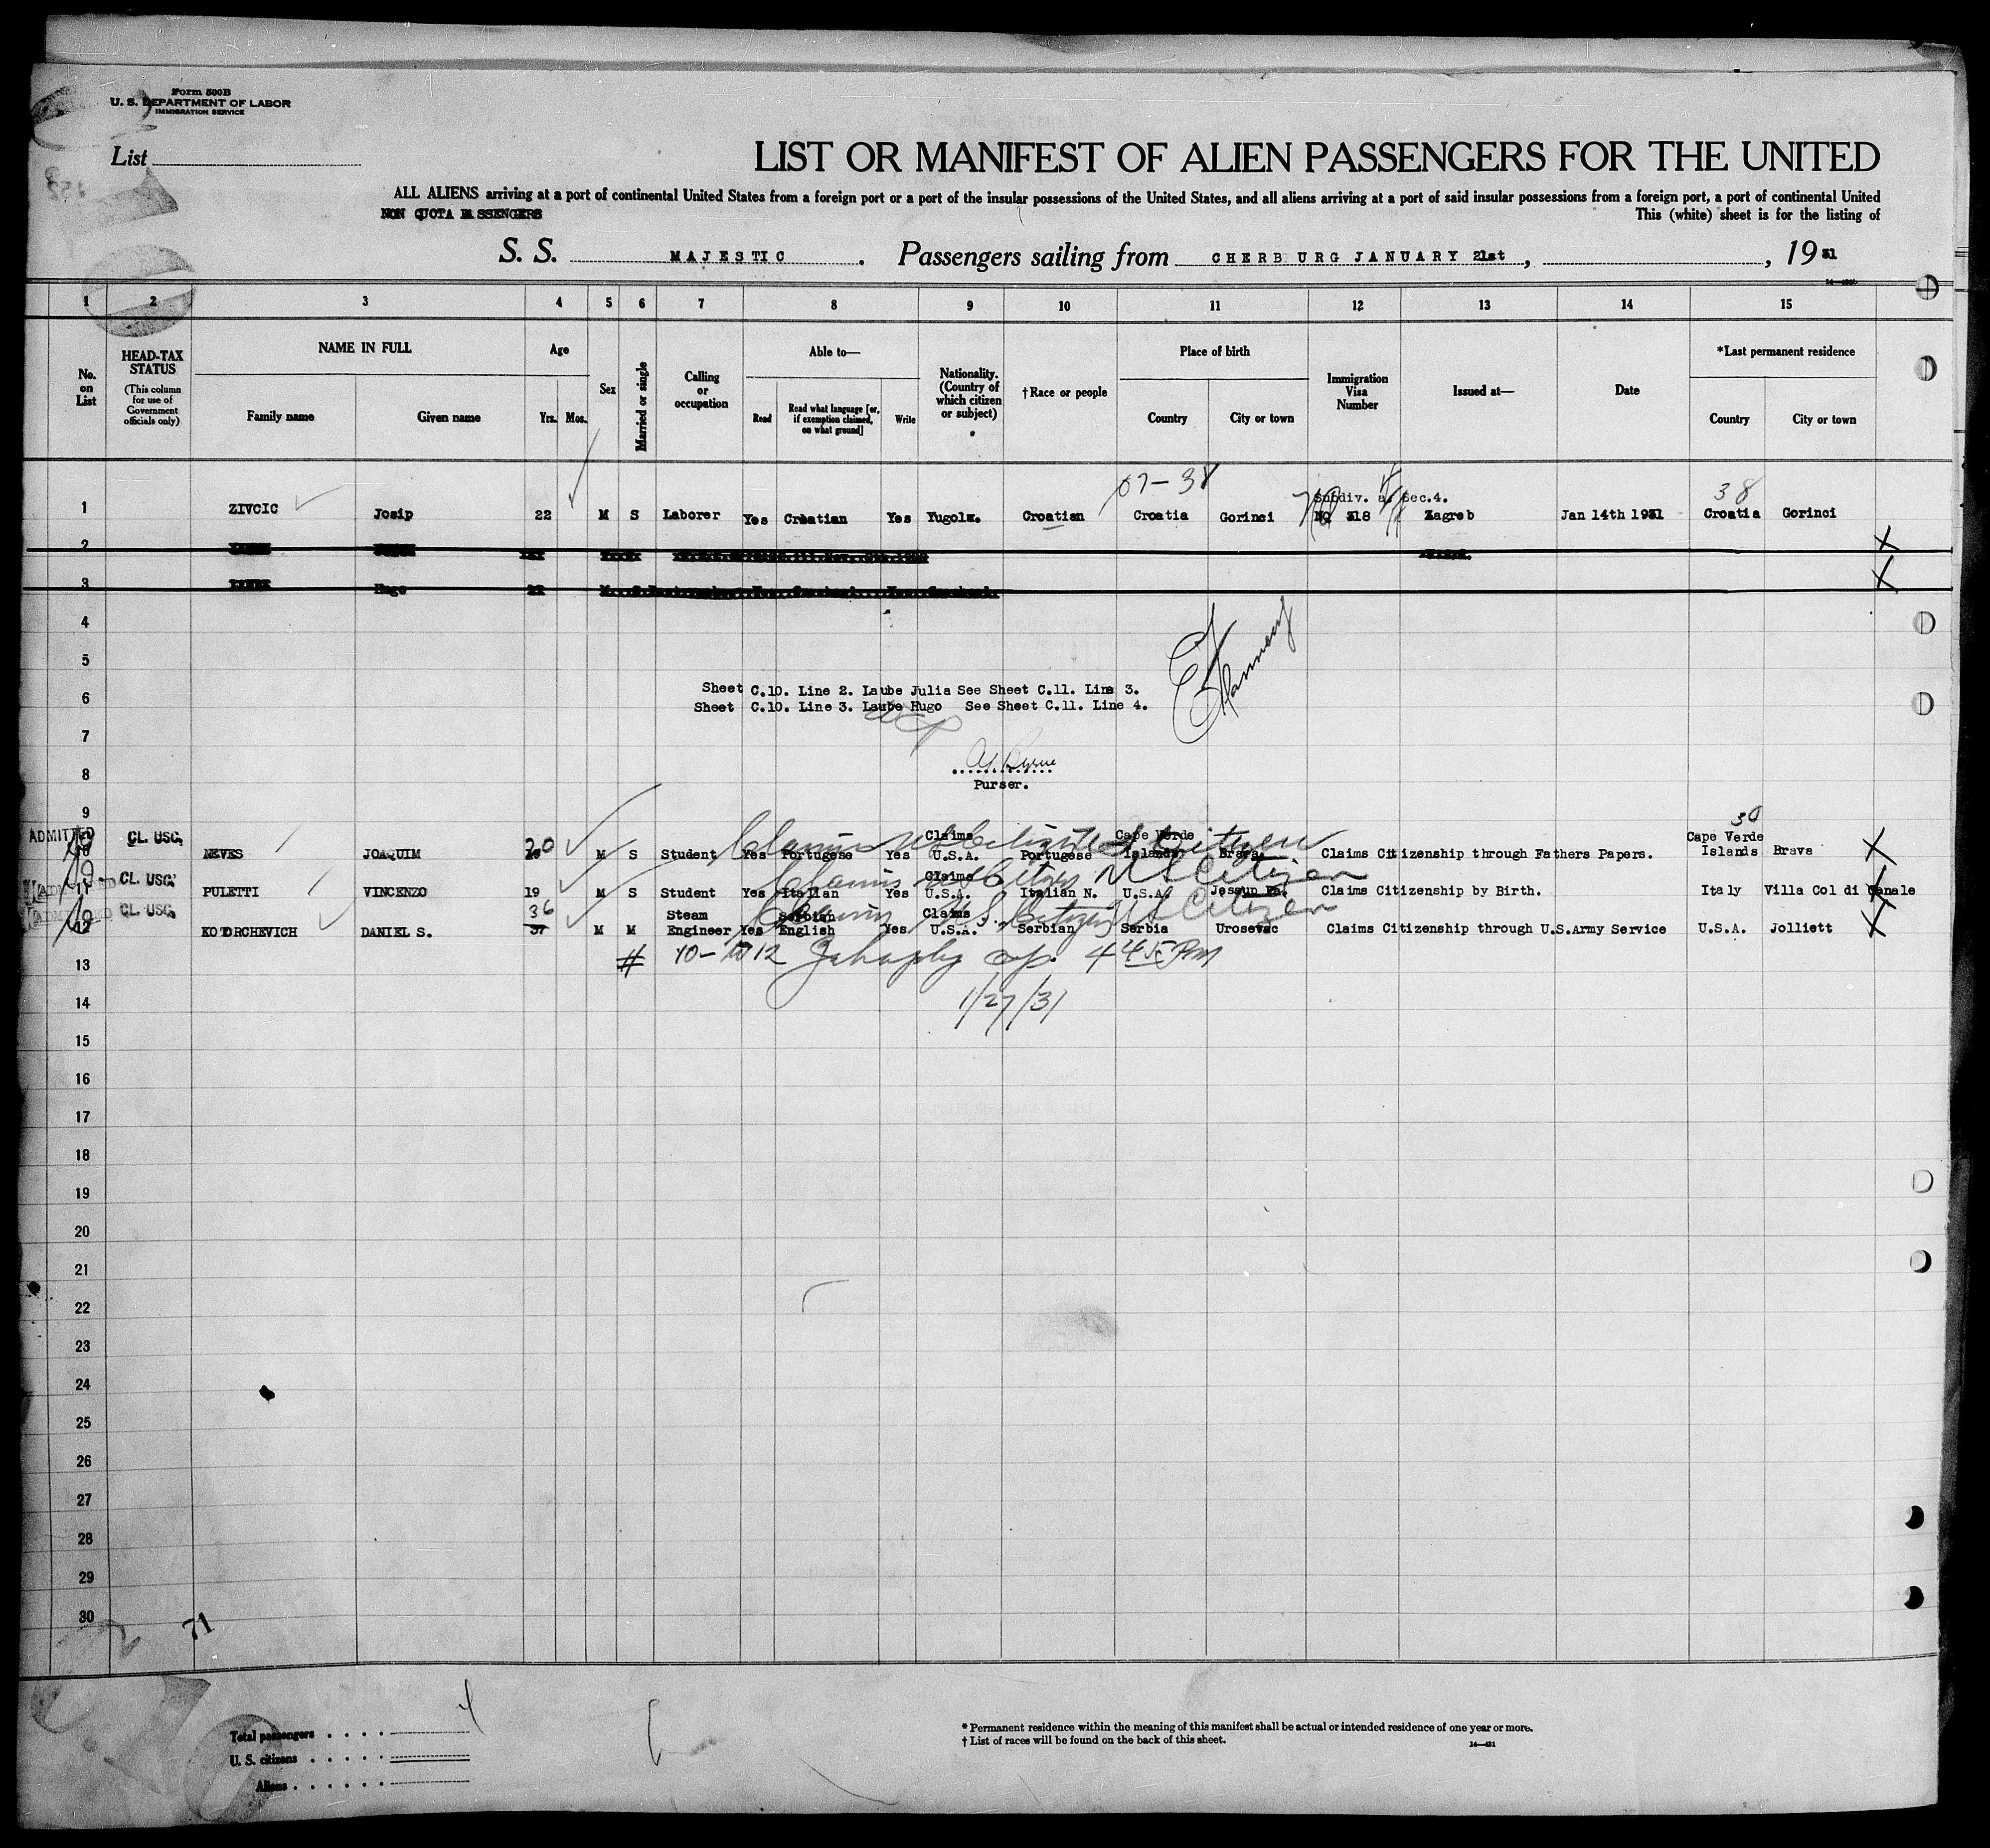 Form 500B
U. S. DEPARTMENT OF LABOR
IMMIGRATION SERVICE
List
LIST OR MANIFEST OF ALIEN PASSENGERS FOR THE UNITED
ALL ALIENS arriving at a port of continental United States from a foreign port or a port of the insular possessions of the United States, and all aliens arriving at a port of said insular possessions from a foreign port, a port of continental United
NON QUOTA PASSENGERS
This (white) sheet is for the listing of
S. S. MAJESTIC. Passengers sailing from CHERB URG JANUARY 21st, , 1931
1 2 3 4 5 6 7 8 9 10 11 12 13 14 15
No. on List
HEAD-TAX STATUS (This column for use of Government officials only)
NAME IN FULL
Family name Given name
Age
Yrs. Mos.
Sex
Married or single
Calling or occupation
Able to—
Read Read what language [or, if exemption claimed, on what ground] Write
Nationality. (Country of which citizen or subject)
†Race or people
Place of birth
Country City or town
Immigration Visa Number
Issued at—
Date
*Last permanent residence
Country City or town
07-38
Subdiv. a. Sec.4.
38
1 ZIVCIC Josip 22 M S Laborer Yes Croatian Yes Yugolz. Croatian Croatia Gorinci NQ 318 Zagreb Jan 14th 1931 Croatia Gorinci
2 X
3 Hugo 22 M X
4
5
6
Sheet C.10. Line 2. Laube Julia See Sheet C.11. Line 3.
Sheet C.10. Line 3. Laube Hugo See Sheet C.11. Line 4.
7
8
Purser.
9
30
ADMITTED CL. USC. 20 Claims U.S. Citizen
10 NEVES JOAQUIM M S Student Yes Portugese Yes Claims U.S.A. Portugese Cape Verde Islands Brava. Claims Citizenship through Fathers Papers. Cape Verde Islands Brava X
ADMITTED CL. USC. Claims US Citizen US Citizen
11 PULETTI VINCENZO 19 M S Student Yes Italian Yes Claims U.S.A. Italian N. U.S.A. Jessup Pa. Claims Citizenship by Birth. Italy Villa Col di Canale X
ADMITTED CL. USC. 36 Claims U.S. Citizen US Citizen
12 KOTORCHEVICH DANIEL S. 37 M M Steam Engineer Yes Serbian English Yes Claims U.S.A. Serbian Serbia Urosevac Claims Citizenship through U.S.Army Service U.S.A. Jolliett X
13 # 10-12 4 45 Pm
14 1/27/31
15
16
17
18
19
20
21
22
23
24
25
26
27
28
29
30
71
Total passengers 4
U. S. citizens
Aliens
* Permanent residence within the meaning of this manifest shall be actual or intended residence of one year or more.
† List of races will be found on the back of this sheet.